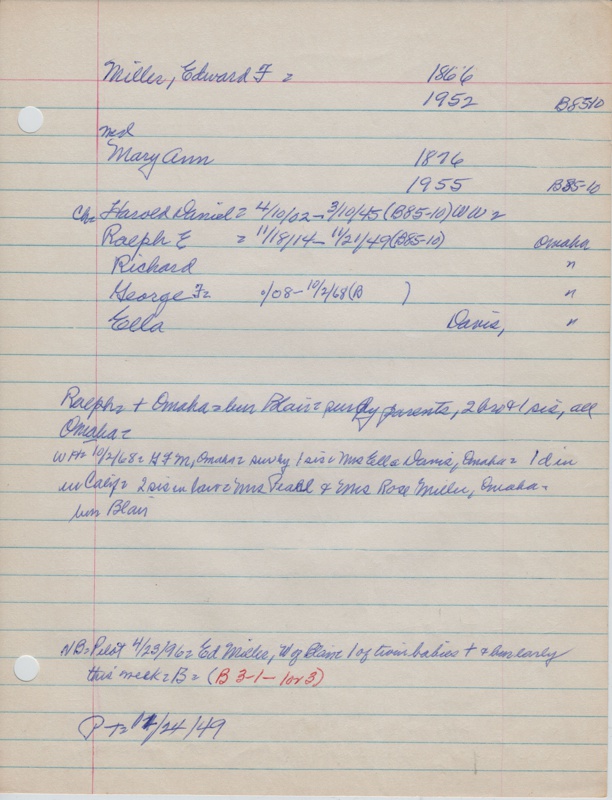 Miller, Edward F = 1866
1952 B85-10
md
Mary Ann 1876
1955 B85-10
Ch= Harold Daniel = 4/10/02 - 3/10/45 (B85-10) WW 2
Ralph E = 11/18/14 - 11/21/49 (B85-10) Omaha
Richard "
George F= /08 - 10/2/68 (B ) "
Ella Davis, "
Ralph= + Omaha = bur Blair = surv by parents, 2 bro & 1 sis, all
Omaha =
WH= 10/2/68 = G F M, Omaha = surv by 1 sis = Mrs Ella Davis, Omaha = 1 d in
in Calif = 2 sis in law = Mrs Pearl & Mrs Rose Miller, Omaha =
bur Blair
NB= Pilot 4/23/96 = Ed Miller, W of Blair 1 of twin babies + & bur early
this week = B = (B 3-1- 1 or 3)
P T= 11/24/49